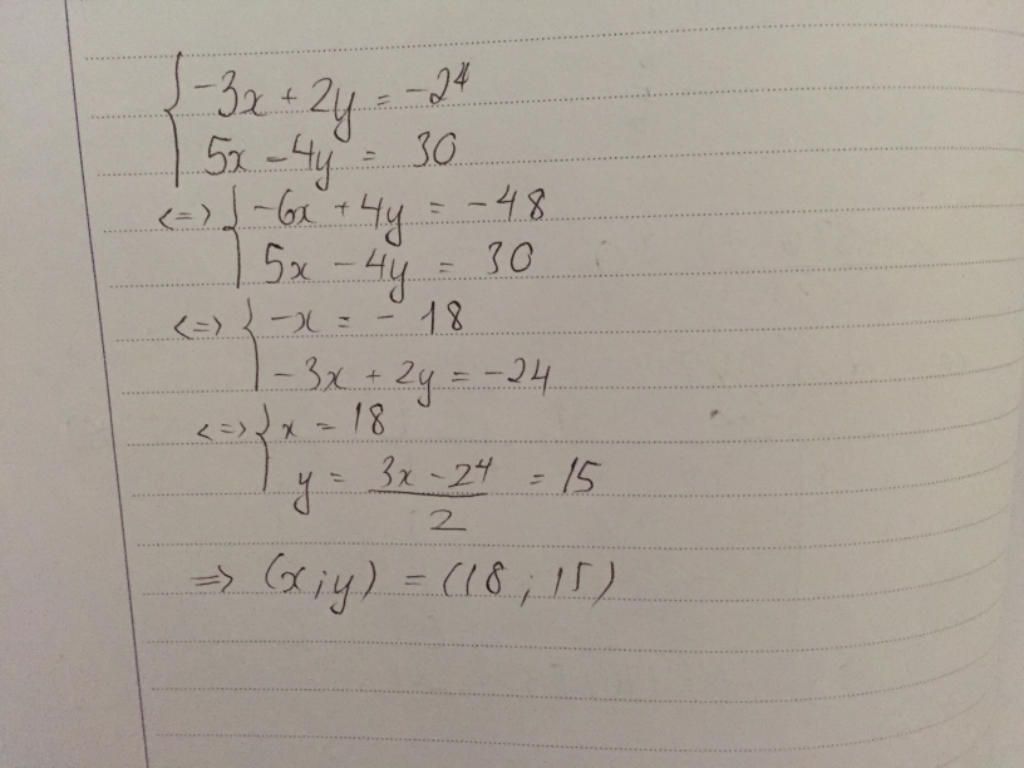 { -3x + 2y = -24
5x - 4y = 30
<=> { -6x + 4y = -48
5x - 4y = 30
<=> { -x = - 18
-3x + 2y = -24
<=> { x = 18
y = (3x - 24)/2 = 15
=> (x;y) = (18 ; 15)